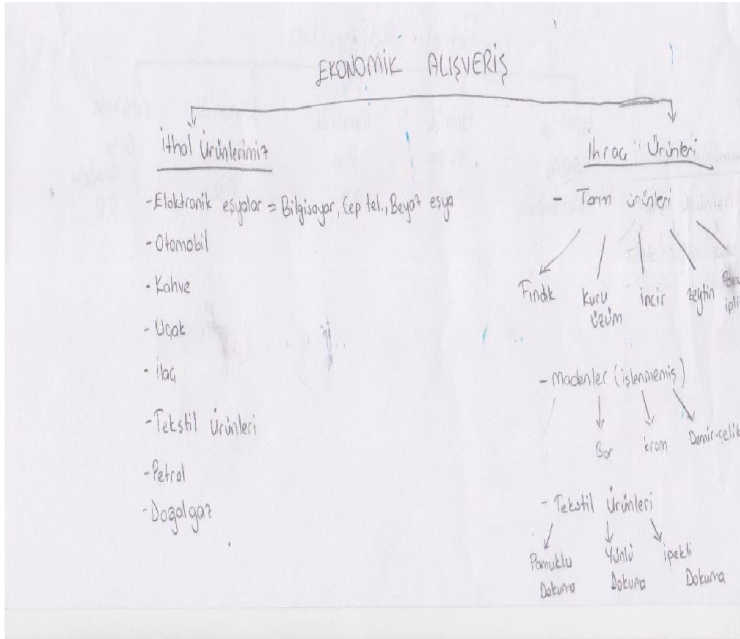 EKONOMİK ALIŞVERİŞ
İthal Ürünlerimiz
-Elektronik eşyalar = Bilgisayar, Cep tel., Beyaz eşya
-Otomobil
-Kahve
-Uçak
-ilaç
-Tekstil Ürünleri
-Petrol
-Doğalgaz
İhraç Ürünleri
- Tarım ürünleri
Fındık
kuru
üzüm
incir
zeytin
ipli
- madenler (işlenmemiş)
Bor
krom
Demir-çelik
- Tekstil Ürünleri
Pamuklu
Dokuma
Yünlü
Dokuma
ipekli
Dokuma